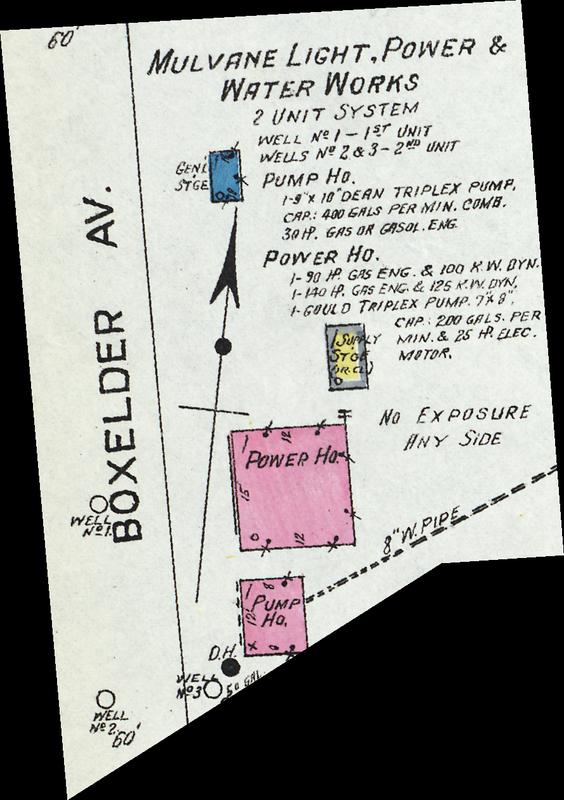 60'
MULVANE LIGHT, POWER &
WATER WORKS
2 UNIT SYSTEM
WELL Nº 1 – 1ST UNIT
WELLS Nº 2 & 3 – 2ND UNIT
GENL
STGE
PUMP HO.
1-9"X 10" DEAN TRIPLEX PUMP,
CAP.: 400 GALS PER MIN. COMB.
30 HP. GAS OR GASOL. ENG.
POWER HO.
1-90 HP. GAS ENG. & 100 K.W. DYN.
1-140 HP. GAS ENG. & 125 K.W. DYN.
1-GOULD TRIPLEX PUMP. 7"X 8",
CAP.: 200 GALS. PER
MIN. & 25 HP. ELEC.
MOTOR.
BOXELDER AV.
1 SUPPLY
STGE
(IR.CL.)
O
NO EXPOSURE
ANY SIDE
1
12
POWER HO.
15
O
12
WELL
Nº 1.
8" W. PIPE
1
8
PUMP
HO.
12
X
D.H.
WELL
Nº 3
50 GAL
WELL
Nº 2
60'